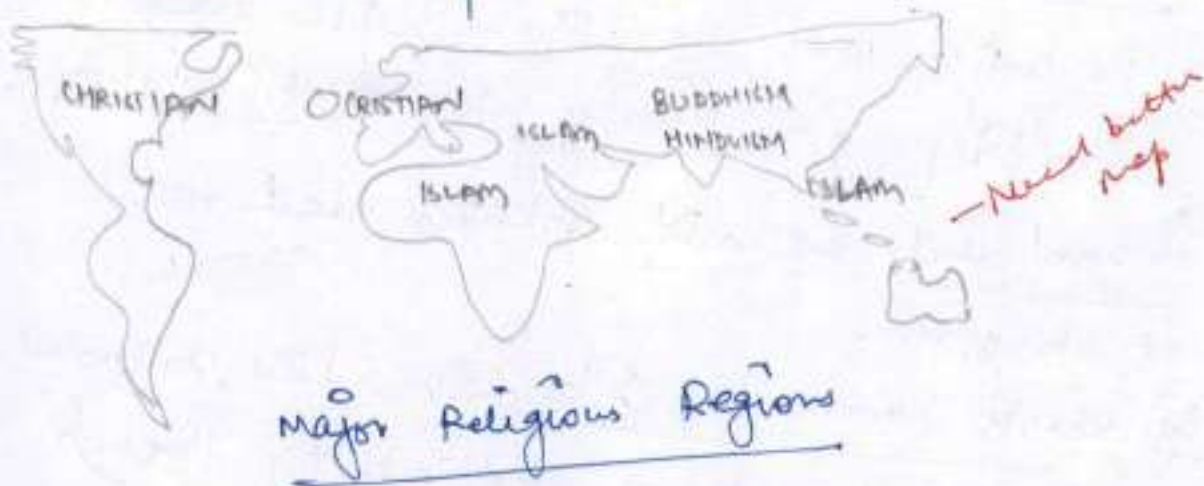 CHRISTIAN
CRISTIAN
ISLAM
BUDDHISM
HINDUISM
ISLAM
ISLAM
- Need better
map
Major Religious Regions